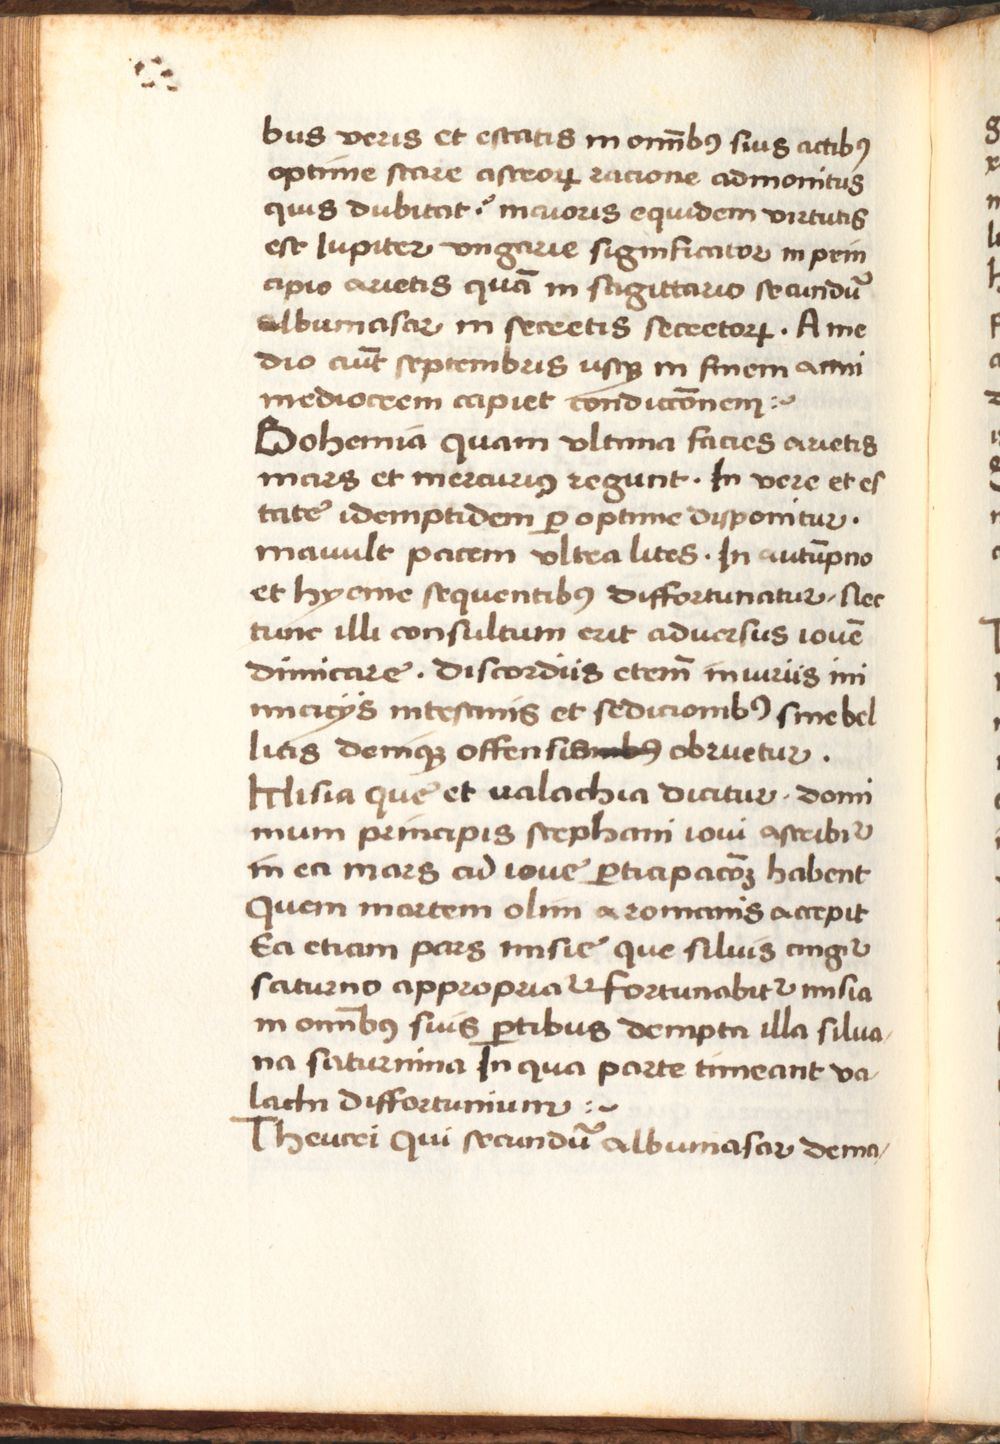 bus veris et estatis in om̄ibꝰ suis actibꝰ
optime stare astroꝝ racione admonitus
quis dubitat? maioris equidem virtutis
est Iupiter vngarie significator in prin
cipio arietis quā in sagittario secundū
albumasar in secretis secretoꝝ. A me
dio aut̄ septembris usqꝫ in finem anni
mediocrem capiet condiccōnem
Bohemia quam vltima facies arietis
mars et mercuriꝰ regunt. In vere et es
tate idemptidem ꝑ optime disponitur.
mauult pacem vltra lites. In autūpno
et hyeme sequentibꝰ diffortunatur. Nec
tunc illi consultum erit aduersus iouē
dimicare. discordiis etem̄ iniuriis ini
miciciis intestinis et sedicionibꝰ sine bel
licis deniqꝫ offensis obruetur.
Misia que et ualachia dicitur. domi
nium principis stephani ioui ascribit᷑
in ea mars cū ioue ꝑticipacōꝫ habent
Quem martem olim a romanis accepit
Ea etiam pars misie que siluis cingit᷑
saturno appropriat᷑ fortunabit᷑ misia
in om̄ibꝰ suis ꝑtibus dempta illa silua/
na saturnina In qua parte timeant va/
lachi diffortunium
Theucri qui secundū albumasar dema/